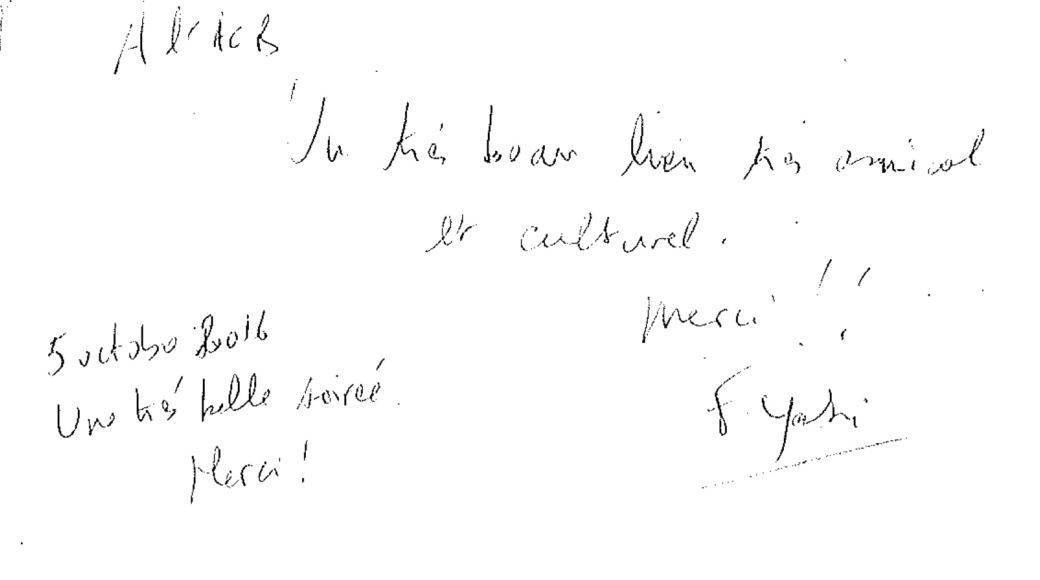 A l'ACB
Un très beau lien très amical
et culturel.
Merci !!
F. Yahi
5 octobre 2016
Une très belle soireé.
Merci !